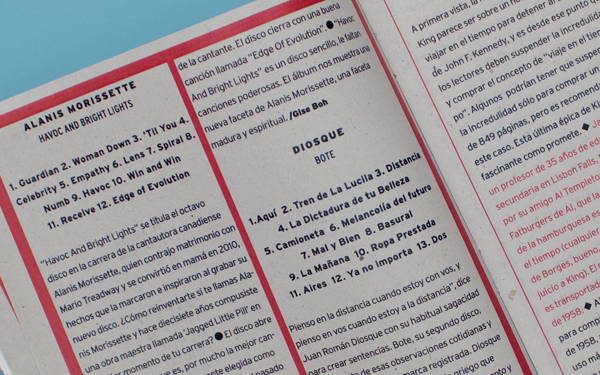 ALANIS MORISSETTE
HAVOC AND BRIGHT LIGHTS
1. Guardian 2. Woman Down 3. 'Til You 4.
Celebrity 5. Empathy 6. Lens 7. Spiral 8.
Numb 9. Havoc 10. Win and Win
11. Receive 12. Edge of Evolution
"Havoc And Bright Lights" se titula el octavo
disco en la carrera de la cantautora canadiense
Alanis Morissette, quien contrajo matrimonio con
Mario Treadway y se convirtió en mamá en 2010,
hechos que la marcaron e inspiraron al grabar su
nuevo disco. ¿Cómo reinventarte si te llamas Ala-
nis Morissette y hace diecisiete años compusiste
una obra maestra llamada 'Jagged Little Pill' en
momento de tu carrera? ● El disco abre
que es, por mucho la mejor can-
mente elegida como
de la cantante. El disco cierra con una buena
canción llamada "Edge Of Evolution". ● "Havoc
And Bright Lights" es un disco sencillo, le faltan
canciones poderosas. El álbum nos muestra una
nueva faceta de Alanis Morissette, una faceta
madura y espiritual. /Gise Boh
DIOSQUE
BOTE
1.Aquí 2. Tren de La Lucila 3. Distancia
4. La Dictadura de tu Belleza
5. Camioneta 6. Melancolía del futuro
7. Mal y Bien 8. Basural
9. La Mañana 10. Ropa Prestada
11. Aires 12. Ya no Importa 13. Dos
Pienso en la distancia cuando estoy con vos, y
pienso en vos cuando estoy a la distancia", dice
Juan Román Diosque con su habitual sagacidad
para crear sentencias. Bote, su segundo disco,
de esas observaciones cotidianas y
marca registrada. Diosque
griego que
A primera vista, la
King parece ser sobre un
viajar en el tiempo para detener al
de John F. Kennedy, y es desde ese punto
los lectores deben suspender la incredulidad
y comprar el concepto de "viaje en el tiem
po". Algunos podrían tener que suspen
la incredulidad sólo para comprar un
de 849 páginas, pero es recomenda
este caso. Esta última épica de Ki
fascinante como promete. ◆
un profesor de 35 años de ed
secundaria en Lisbon Falls,
por su amigo Al Templeto
Fatburgers de Al, que la
de la hamburguesa es
el tiempo (cualquier
de Borges, bueno,
juicio a King) El
es transportado
de 1958. ◆
para comp